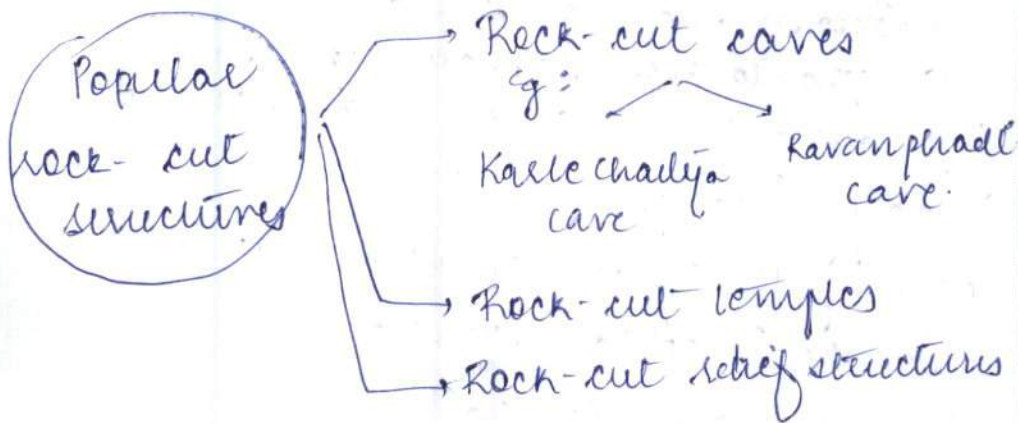 Popular
rock-cut
structures
Rock-cut caves
eg:
Karle Chaitya
cave
Ravanphadi
cave.
Rock-cut temples
Rock-cut relief structures